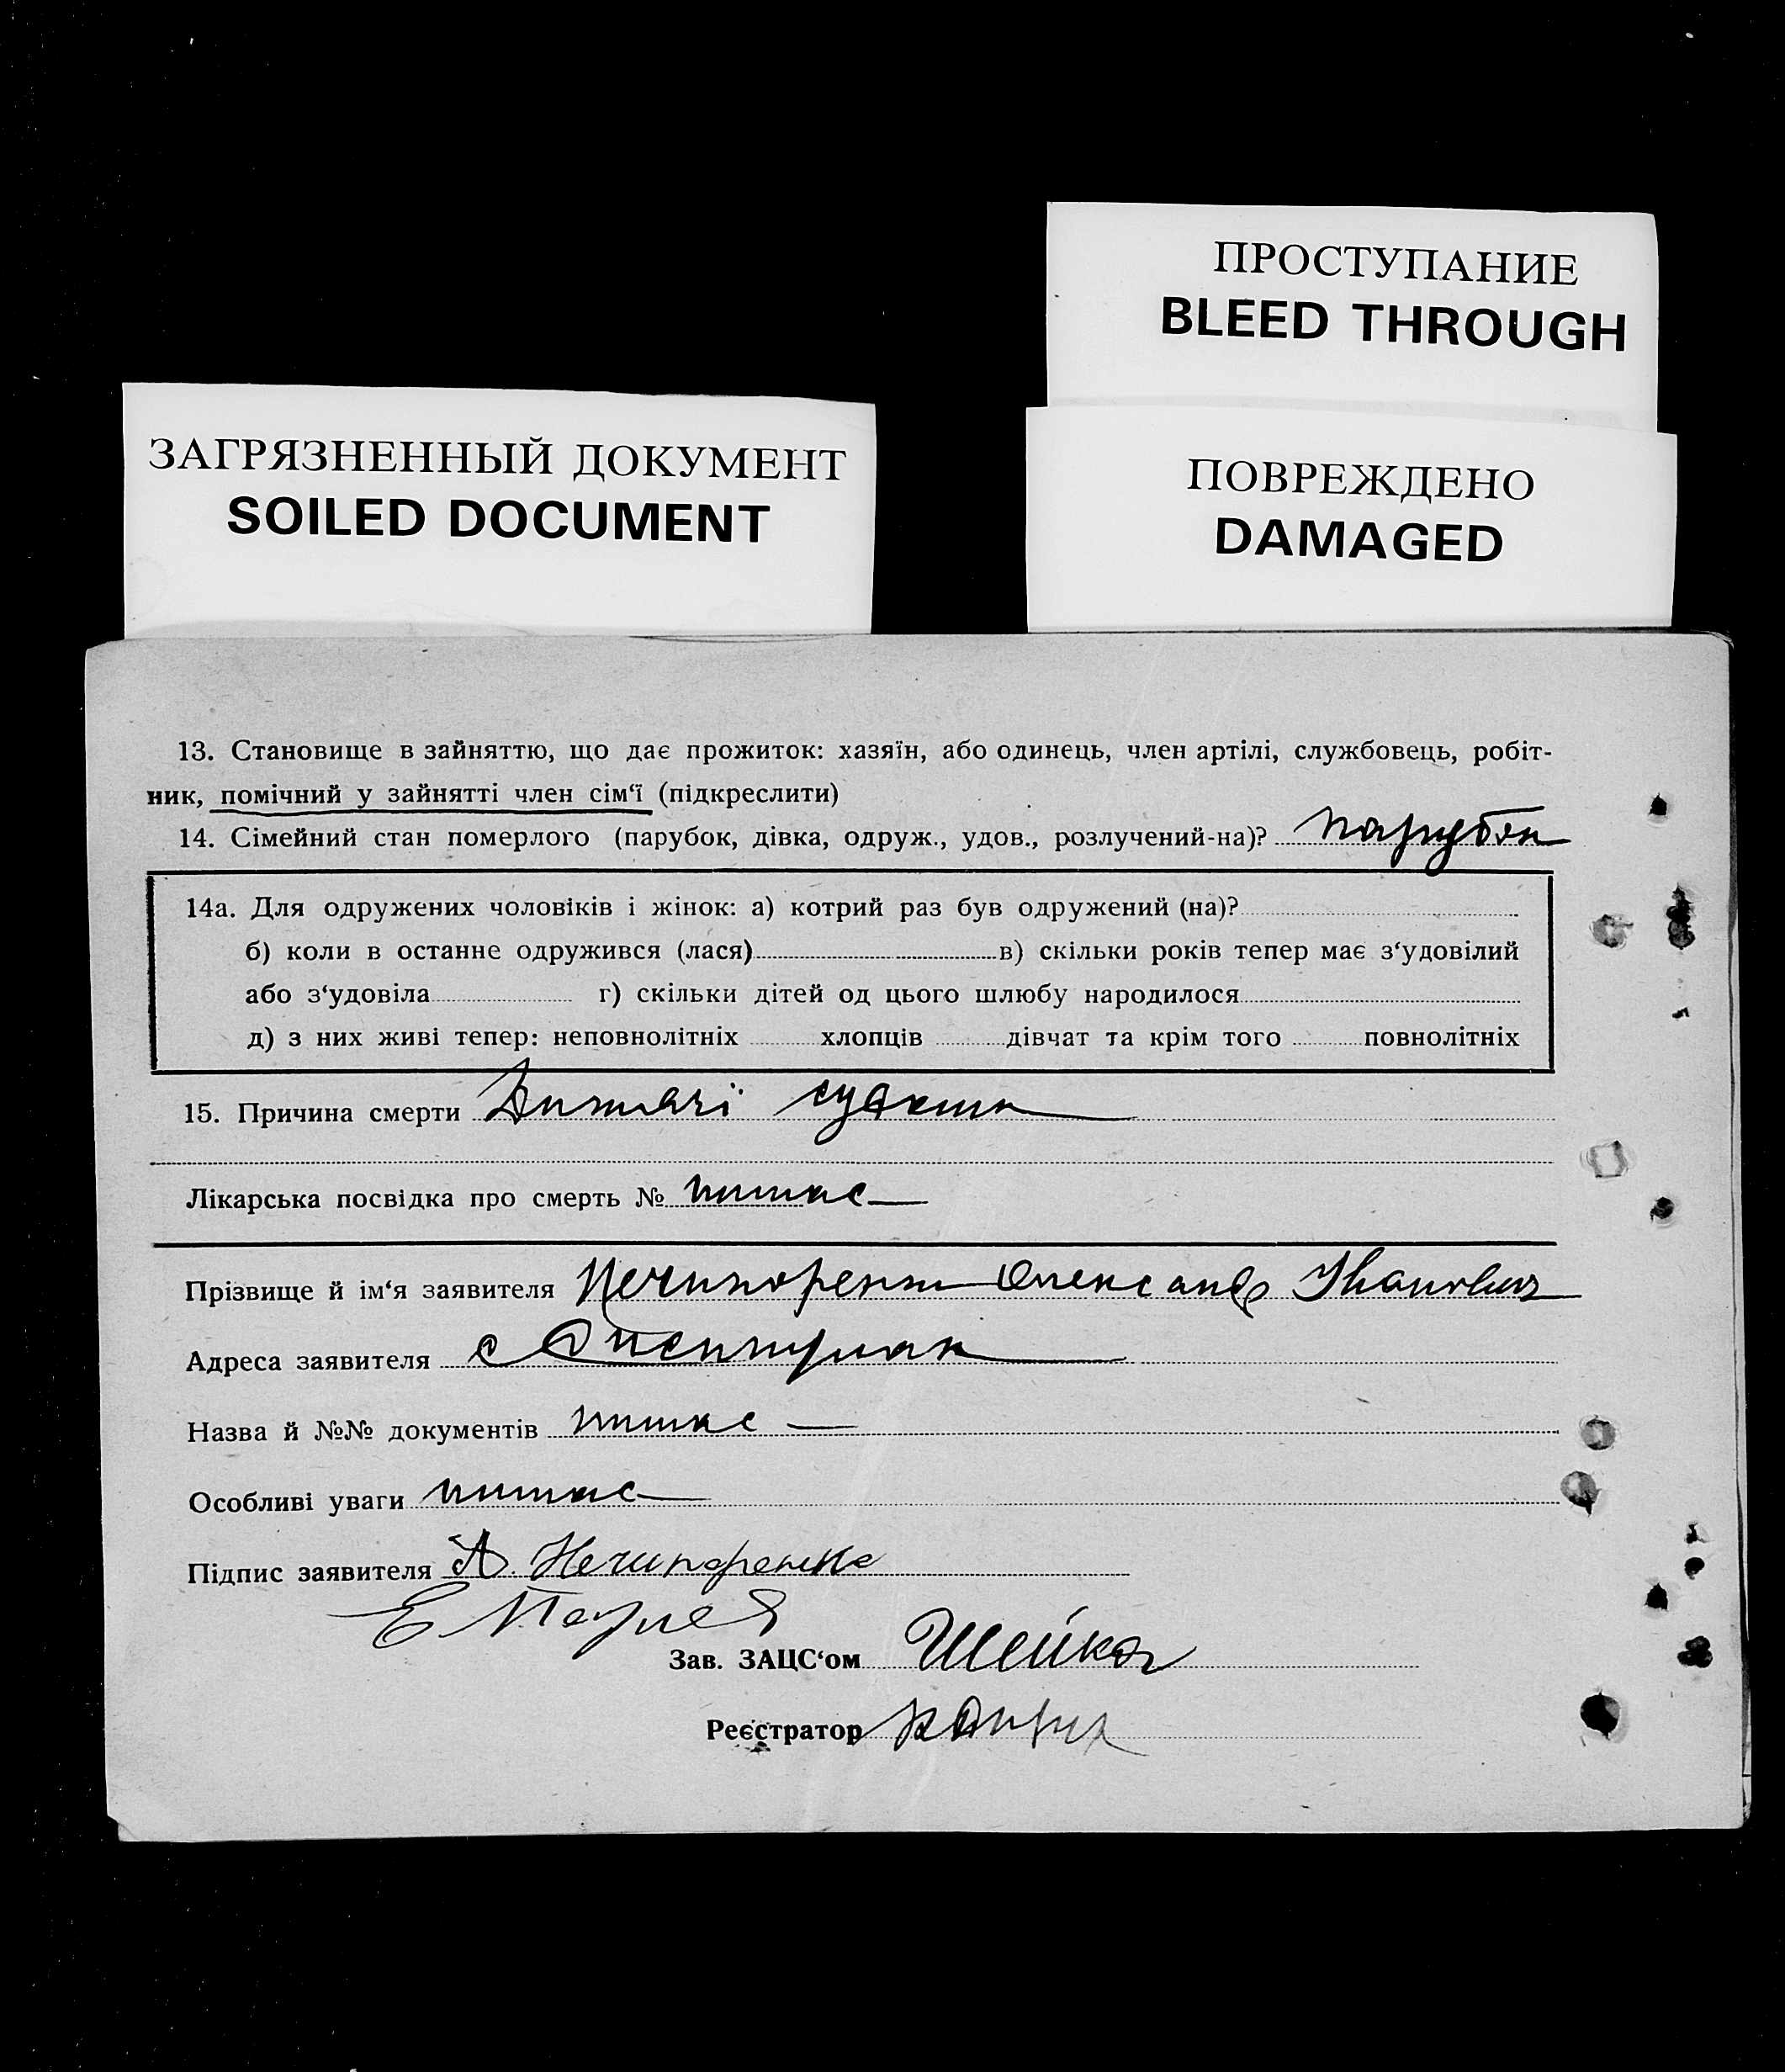 ПРОСТУПАНИЕ
BLEED THROUGH
ЗАГРЯЗНЕННЫЙ ДОКУМЕНТ
SOILED DOCUMENT
ПОВРЕЖДЕНО
DAMAGED
13. Становище в зайняттю, що дає прожиток: хазяїн, або одинець, член артілі, службовець, робіт-
ник, помічний у зайнятті член сім‘ї (підкреслити)
14. Сімейний стан померлого (парубок, дівка, одруж., удов., розлучений-на)? парубок
14а. Для одружених чоловіків і жінок: а) котрий раз був одружений (на)?
б) коли в останне одружився (лася) в) скільки років тепер має з‘удовілий
або з‘удовіла г) скільки дітей од цього шлюбу народилося
д) з них живі тепер: неповнолітніх хлопців дівчат та крім того повнолітніх
15. Причина смерти Дитячі судоми
Лікарська посвідка про смерть № немає
Прізвище й ім‘я заявителя Нечипоренко Олександр Іванович
Адреса заявителя с
Назва й №№ документів немає
Особливі уваги немає
Підпис заявителя А. Нечипоренко
Зав. ЗАЦС‘ом Шейко
Реєстратор